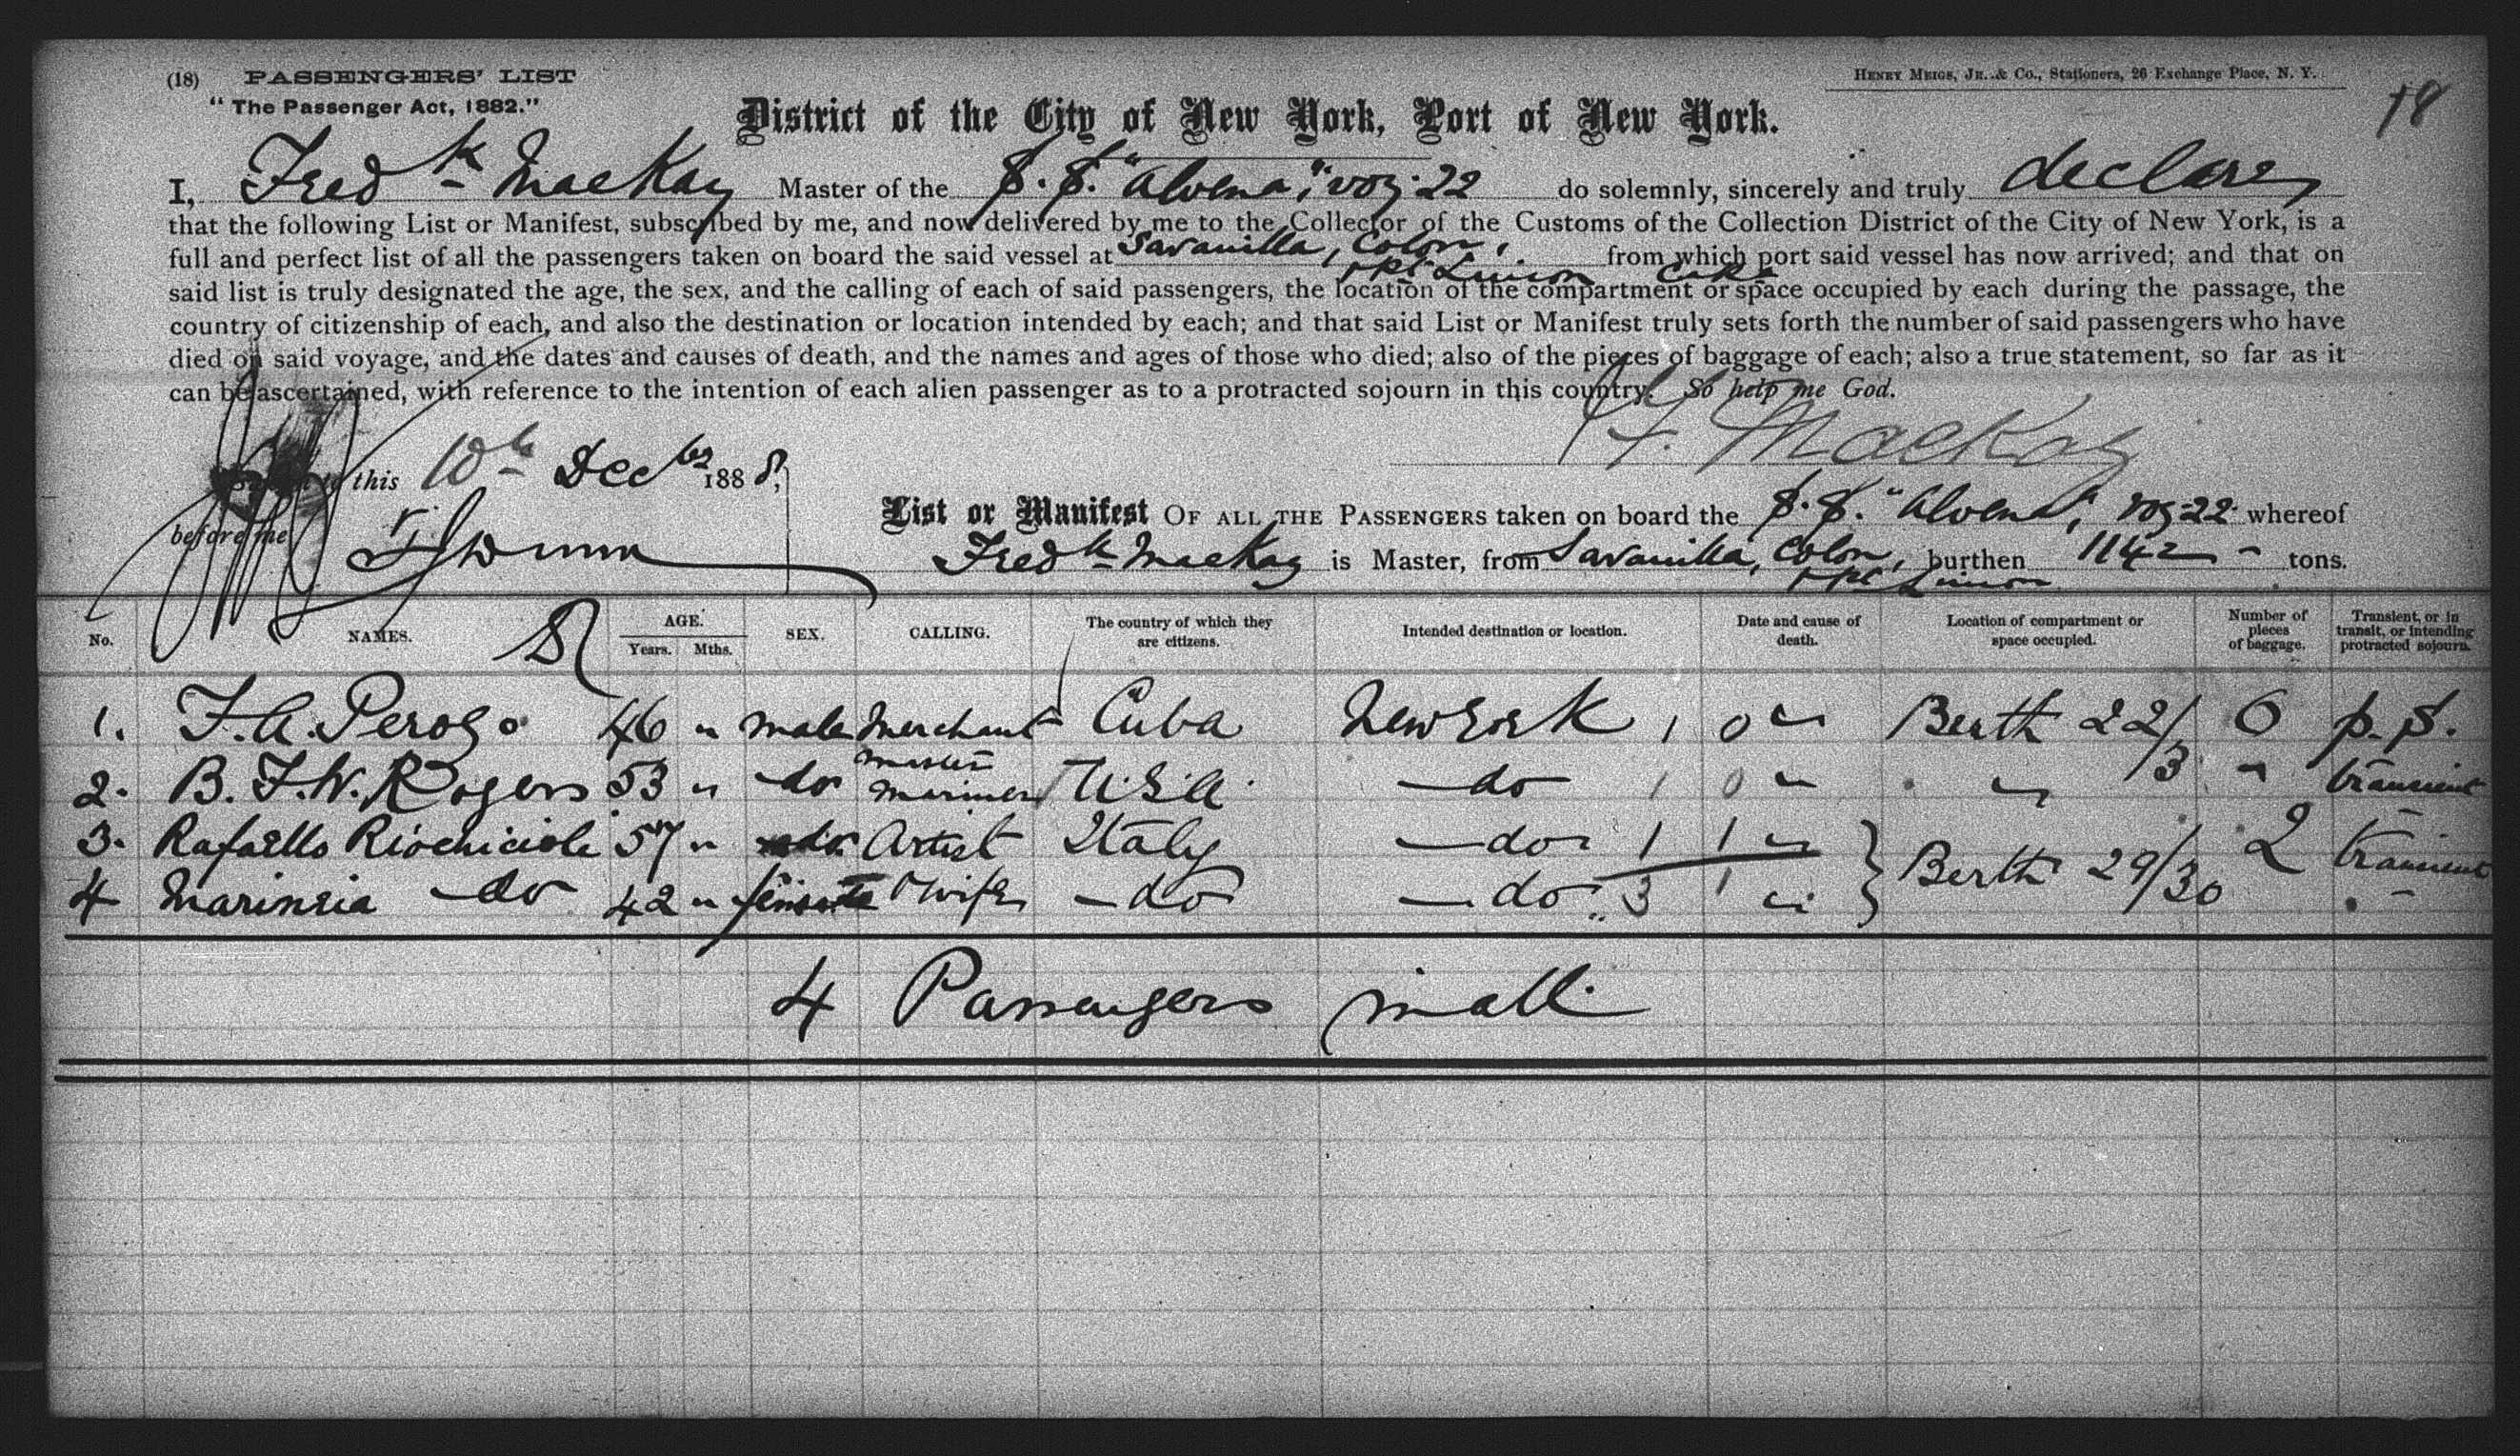 (18) PASSENGERS' LIST
HENRY MEIGS, JR. & CO., Stationers, 26 Exchange Place, N. Y.
18
"The Passenger Act, 1882."
District of the City of New York, Port of New York.
I, Fredk MacKay Master of the S.S. "Alvena", voy 22 do solemnly, sincerely and truly declare
that the following List or Manifest, subscribed by me, and now delivered by me to the Collector of the Customs of the Collection District of the City of New York, is a
full and perfect list of all the passengers taken on board the said vessel at Savanilla, Colon, from which port said vessel has now arrived; and that on
Pt Limon
said list is truly designated the age, the sex, and the calling of each of said passengers, the location of the compartment or space occupied by each during the passage, the
country of citizenship of each, and also the destination or location intended by each; and that said List or Manifest truly sets forth the number of said passengers who have
died on said voyage, and the dates and causes of death, and the names and ages of those who died; also of the pieces of baggage of each; also a true statement, so far as it
can be ascertained, with reference to the intention of each alien passenger as to a protracted sojourn in this country. So help me God.
F. MacKay
this 10th Decber 1888,
before me
List or Manifest OF ALL THE PASSENGERS taken on board the S.S. "Alvena", voy 22 whereof
Fredk MacKay is Master, from Savanilla, Colon, burthen 1142 - tons.
Pt Limon
No. NAMES. AGE. Years. Mths. SEX. CALLING. The country of which they are citizens. Intended destination or location. Date and cause of death. Location of compartment or space occupied. Number of pieces of baggage. Transient, or in transit, or intending protracted sojourn.
1. F.A. Perozo 46 " male Merchant Cuba New York 1 0 " Berth 22/ 6 p. s.
2. B.F.W. Rogers 53 " do master mariner U.S.A. do 1 0 " " " /3 " transient
3. Rafaello 57 " do Artist Italy do 1 1 " Berth 29/30 2 transient
4 do 42 " female wife do do 3 1 " "
4 Passengers in all.